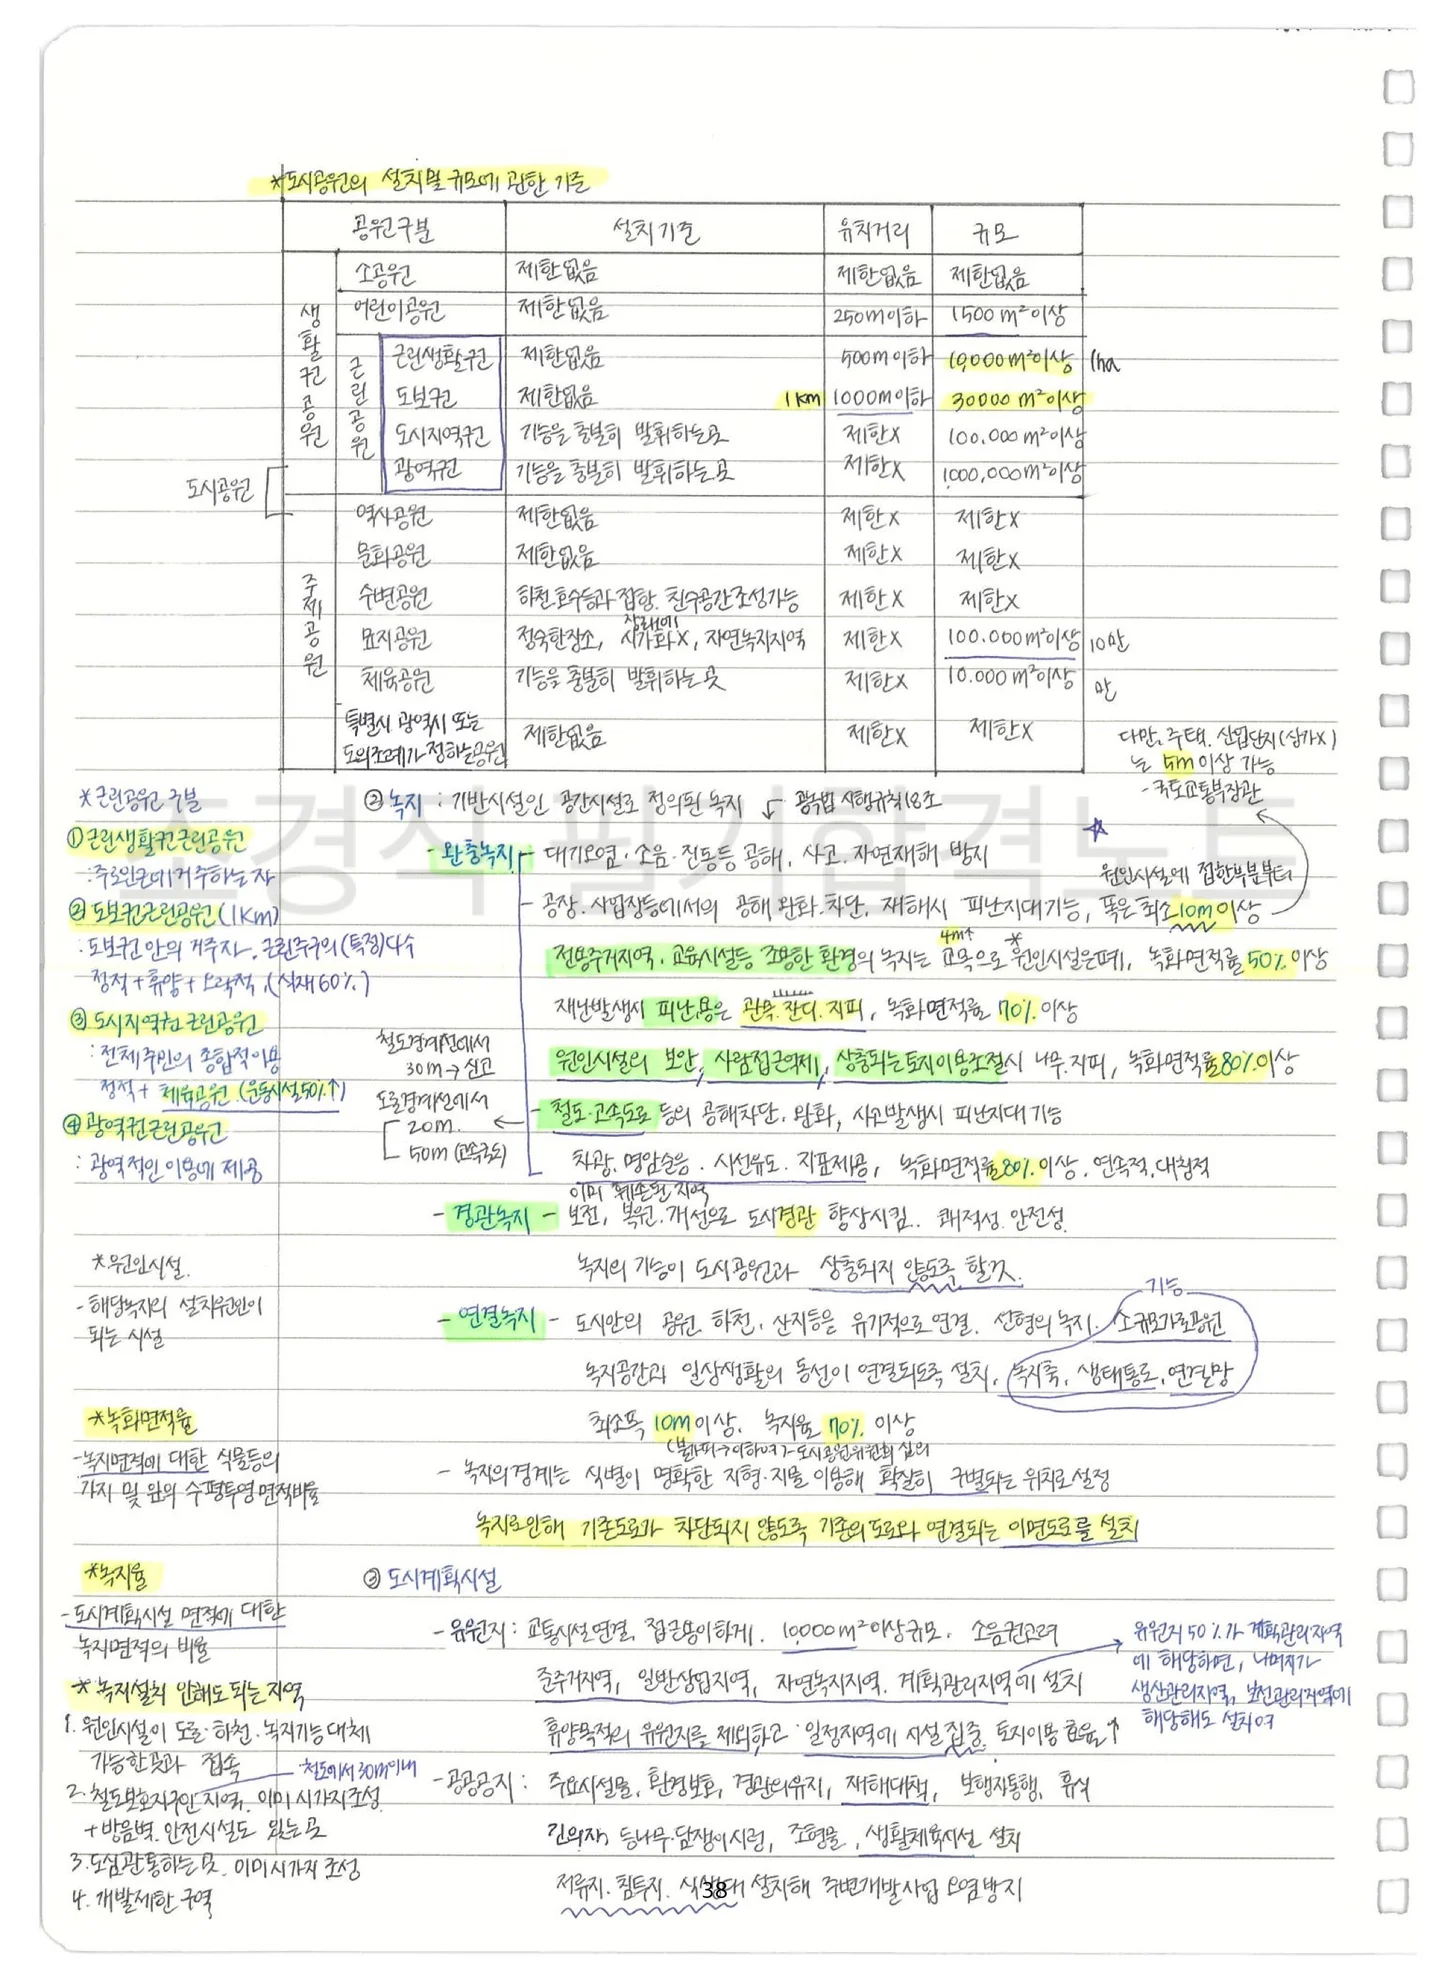 *도시공원의 설치 및 규모에 관한 기준
공원구분 설치기준 유치거리 규모
생활권공원
소공원 제한없음 제한없음 제한없음
어린이공원 제한없음 250m이하 1500m²이상
근린공원
근린생활권 제한없음 500m이하 10,000m²이상 1ha
도보권 제한없음 1km 1000m이하 30000m²이상
도시지역권 기능을 충분히 발휘하는곳 제한X 100,000m²이상
광역권 기능을 충분히 발휘하는곳 제한X 1000,000m²이상
도시공원
주제공원
역사공원 제한없음 제한X 제한X
문화공원 제한없음 제한X 제한X
수변공원 하천.호수등과 접함. 친수공간조성가능 제한X 제한X
묘지공원 정숙한장소, 장래에 시가화X, 자연녹지지역 제한X 100.000m²이상 10만
체육공원 기능을 충분히 발휘하는 곳 제한X 10.000m²이상 만
특별시 광역시 또는
도의조례가 정하는공원 제한없음 제한X 제한X
다만, 주택. 산업단지(상가X)
는 5m이상 가능
- 국토교통부장관
조경식 필기합격노트
*근린공원 구분
① 근린생활권근린공원
: 주로인근에거주하는자
② 도보권근린공원(1Km)
: 도보권 안의 거주자. 근린주구의(특징)다수
정적+휴양+오락적, (식재60%)
③ 도시지역권 근린공원
: 전체주민의 종합적이용
정적+ 체육공원 (운동시설50%↑)
④ 광역권근린공원
: 광역적인 이용에 제공
② 녹지 : 기반시설인 공간시설로 정의된 녹지 ↙ 공녹법 시행규칙18조
- 완충녹지 - 대기오염·소음·진동등 공해, 사고. 자연재해 방지
☆ 원인시설에 접한부분부터
- 공장. 사업장등에서의 공해 완화.차단, 재해시 피난지대기능, 폭은 최소10m이상
전용주거지역. 교육시설등 조용한 환경의 녹지는 4m↑ 교목으로 *원인시설은폐, 녹화면적률 50%이상
재난발생시 피난용은 관목.잔디.지피, 녹화면적률 70%이상
원인시설의 보안, 사람접근억제, 상충되는토지이용조절시 나무.지피, 녹화면적률80%이상
철도경계선에서
30m→신고
도로경계선에서
20m.
50m(고속국도)
- 철도·고속도로 등의 공해차단. 완화, 사고발생시 피난지대 기능
차광. 명암순응. 시선유도. 지표제공, 녹화면적률80%이상. 연속적.대칭적
이미 훼손된 지역
- 경관녹지 - 보전, 복원.개선으로 도시경관 향상시킴. 쾌적성.안전성.
녹지의 기능이 도시공원과 상충되지 않도록 할것.
*원인시설.
- 해당녹지의 설치원인이
되는 시설
기능
- 연결녹지 - 도시안의 공원 하천. 산지등을 유기적으로 연결. 선형의 녹지. 소규모가로공원
녹지공간과 일상생활의 동선이 연결되도록 설치, 녹지축, 생태통로, 연결망
최소폭 10m이상. 녹지율 70%이상
(불가피→이하여가-도시공원위원회 심의
- 녹지의 경계는 식별이 명확한 지형·지물 이용해 확실히 구별되는 위치로 설정
녹지로인해 기존도로가 차단되지 않도록 기존의도로와 연결되는 이면도로를 설치
*녹화면적율
-녹지면적에 대한 식물등의
가지 및 잎의 수평투영면적비율
*녹지율
-도시계획시설 면적에 대한
녹지면적의 비율
* 녹지설치 안해도 되는지역
1. 원인시설이 도로·하천·녹지기능대체
가능한곳과 접속
철도에서 30m이내
2. 철도보호지구인 지역. 이미 시가지조성.
+방음벽.안전시설도 있는곳
3. 도심관통하는 곳. 이미시가지 조성
4. 개발제한 구역
③ 도시계획시설
- 유원지 : 교통시설연결, 접근용이하게. 10,000m²이상규모. 소음권고려
준주거지역, 일반상업지역, 자연녹지지역. 계획관리지역에 설치
유원지 50%가 계획관리지역
에 해당하면, 나머지가
생산관리지역, 보전관리지역에
해당해도 설치여
휴양목적의 유원지를 제외하고 일정지역에 시설 집중. 토지이용 효율↑
- 공공공지 : 주요시설물, 환경보호, 경관의유지, 재해대책, 보행자통행, 휴식
긴의자, 등나무·담쟁이시렁, 조형물, 생활체육시설 설치
저류지. 침투지. 식생대 설치해 주변개발사업 오염방지
38